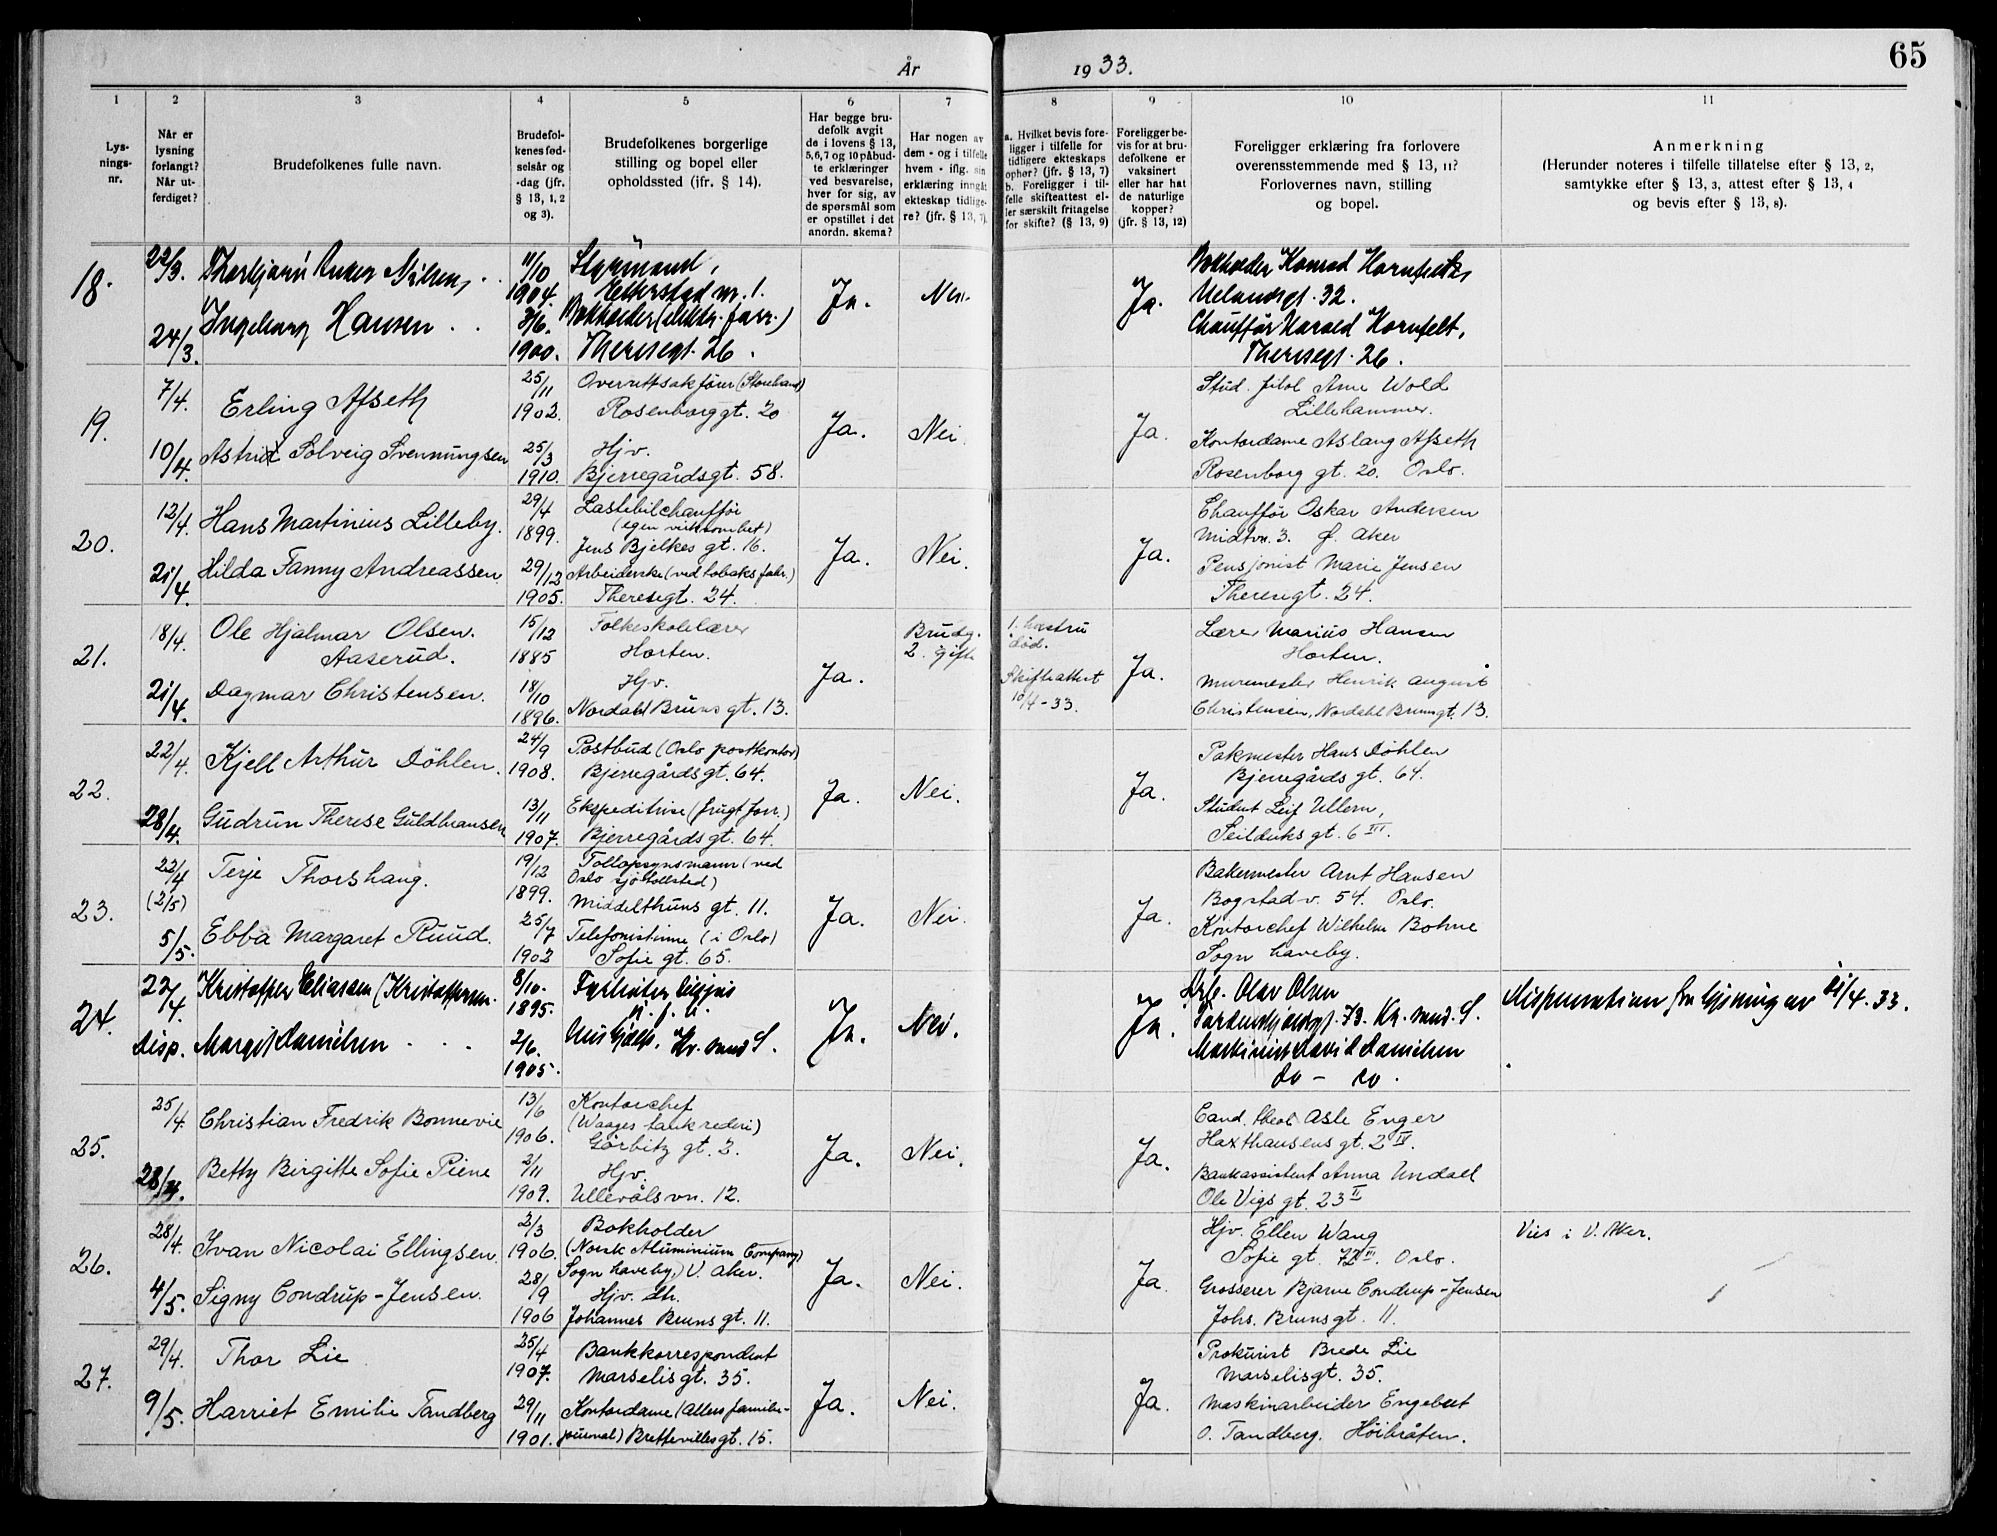 65
År 1933.
1 2 3 4 5 6 7 8 9 10 11
Lys-
nings-
nr.
Når er
lysning
forlangt?
Når ut-
ferdiget?
Brudefolkenes fulle navn.
Brudefol-
kenes fød-
selsår og
-dag (jfr.
§ 13, 1, 2
og 3).
Brudefolkenes borgerlige
stilling og bopel eller
opholdssted (jfr. § 14).
Har begge bru-
defolk avgit
de i lovens § 13,
5,6,7 og 10 påbud-
te erklæringer
ved besvarelse,
hver for sig, av
de spørsmål som
er opstillet i det
anordn. skema?
Har nogen av
dem - og i tilfelle
hvem - iflg. sin
erklæring inngåt
ekteskap tidlige-
re? (jfr. § 13, 7).
a. Hvilket bevis fore-
ligger i tilfelle for
tidligere ekteskaps
ophør? (jfr. § 13, 7)
b. Foreligger i til-
felle skifteattest el-
ler særskilt fritagelse
for skifte? (§ 13, 9)
Foreligger be-
vis for at bru-
defolkene er
vaksinert
eller har hat
de naturlige
kopper?
(jfr. § 13, 12)
Foreligger erklæring fra forlovere
overensstemmende med § 13, 11?
Forlovernes navn, stilling
og bopel.
Anmerkning
(Herunder noteres i tilfelle tillatelse efter § 13, 2,
samtykke efter § 13, 3, attest efter § 13, 4
og bevis efter § 13, 8).
18.
22/3.
24/3.
Nilsen,
Ingeborg Hansen
11/10
1904.
3/6.
1900.
Styrmand,
Etterstad nr. 1.
Bokholder
Theresegt. 26.
Ja.
Nei.
Ja.
Bokholder Konrad Hornfelt,
Uelandsgt. 32.
Chauffør Harald Hornfelt,
Theresegt. 26.
19.
7/4.
10/4.
Erling Afseth
Astrid Solveig Svenningsen
25/11
1902.
25/3
1910.
Overrettsakfører (Storebrand)
Rosenborggt. 20
Hjv.
Bjerregårdsgt. 58.
Ja.
Nei.
Ja.
Stud. filol Arne Wold
Lillehammer.
Kontordame Aslaug Afseth
Rosenborg gt. 20. Oslo.
20.
12/4.
21/4.
Hans Martinius Lilleby.
Hilda Fanny Andreassen
29/4
1899.
29/12
1905.
Lastebilchauffør
(egen virksomhet)
Jens Bjelkes gt. 16.
Arbeiderske (ved tobaks fabr.)
Theresegt. 24.
Ja.
Nei.
Ja.
Chauffør Oskar Andersen
Midtvn. 3. Ø. Aker
Pensjonist Marie Jensen
Theresegt. 24.
21.
18/4.
21/4.
Ole Hjalmar Olsen.
Aaserud.
Dagmar Christensen.
15/12
1885
18/10
1896.
Folkeskolelærer
Horten.
Hjv.
Nordahl Bruns gt. 13.
Ja.
Brudg.
2. gift
1. hustru
død.
Skifteattest
10/4-33.
Ja.
Lærer Marius Hansen
Horten.
Murmester Henrik August
Christensen, Nordahl Brunsgt. 13.
22.
22/4.
28/4.
Kjell Arthur Döhlen.
Gudrun Therese Guldhansen
24/9
1908.
13/11
1907.
Postbud (Oslo postkontor)
Bjerregårdsgt. 64.
Ekspeditrise (frugt forr.)
Bjerregårdsgt. 64.
Ja.
Nei.
Ja.
Pakmester Hans Döhlen
Bjerregårds gt. 64.
Student Leif Ullern,
Seilduks gt. 6 III.
23.
22/4
(2/5)
5/5.
Terje Thorshaug.
Ebba Margaret Ruud.
19/12
1899.
25/7
1902
Tollopsynsmann (ved
Oslo sjøtollsted)
Middelthuns gt. 11.
Telefonistinne (i Oslo)
Sofie gt. 65.
Ja.
Nei.
Ja.
Bakermester Arnt Hansen
Bogstadv. 54. Oslo.
Kontorchef Wilhelm Bohne
Sogn haveby.
24.
22/4.
Disp.
Kristoffer Eliassen (Kristoffersen.
Margit Danielsen
8/10.
1895.
2/6.
1905.
Kr. sand S.
Ja.
Nei.
Ja.
Olav Olsen
Tordenskjoldsgt. 73. Kr. sand. S.
Maskinist David Danielsen
do - do.
Dispensation fra lysning av 21/4. 33.
25.
25/4.
28/4.
Christian Fredrik Bonnevie
Betty Birgitte Sofie Piene
13/6
1906.
2/11
1909.
Kontorchef
(Waages tankrederi)
Gørbitz gt. 2.
Hjv.
Ullevålsvn. 12.
Ja.
Nei.
Ja.
Cand. theol. Asle Enger
Haxthausens gt. 2 IV.
Bankassistent Anna Undall
Ole Vigs gt. 23 II
26.
28/4.
4/5.
Ivan Nicolai Ellingsen.
Signy Condrup-Jensen.
2/3
1906.
28/9
1906
Bokholder
(Norsk Aluminium Company)
Sogn haveby, V. Aker.
Hjv. dtr.
Johannes Bruns gt. 11.
Ja.
Nei.
Ja.
Hjv. Ellen Wang
Sofie gt. 72 III. Oslo.
Grosserer Bjarne Condrup-Jensen
Johs. Brunsgt. 11.
Vies i V. Aker.
27.
29/4.
9/5.
Thor Lie
Harriet Emilie Tandberg
25/4
1907.
29/11
1901.
Bankkorrespondent
Marselisgt. 35.
Kontordame (Allers familie-
journal) Brettevillesgt. 15.
Ja.
Nei.
Ja.
Prokurist Brede Lie
Marselisgt. 35.
Maskinarbeider Engebret
O. Tandberg. Höibråten.